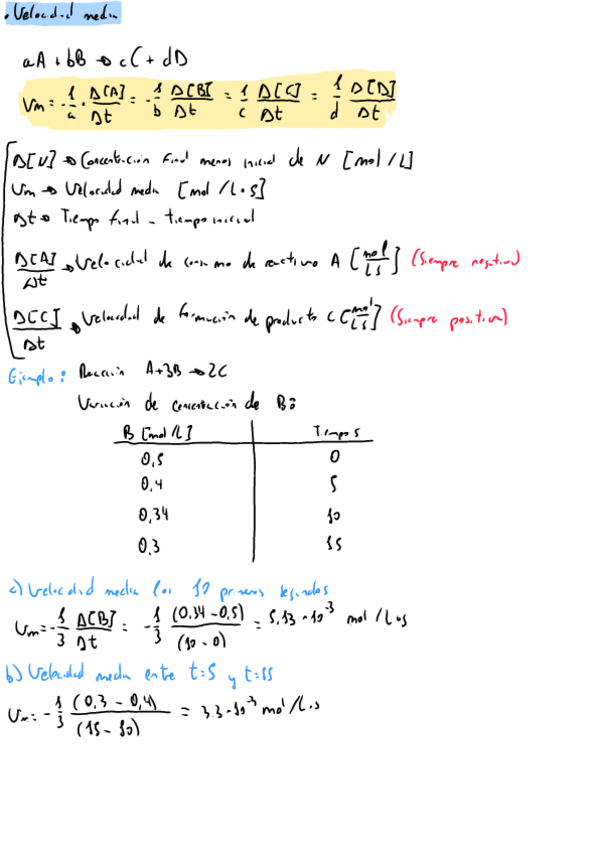 • Velocidad media
aA + bB → cC + dD
Vm = -1/a · Δ[A]/Δt = -1/b Δ[B]/Δt = 1/c Δ[C]/Δt = 1/d Δ[D]/Δt
Δ[N] → Concentración final menos inicial de N [mol/L]
Vm → Velocidad media [mol/L·s]
Δt → Tiempo final - tiempo inicial
Δ[A]/Δt → Velocidad de consumo de reactivo A [mol/L s] (Siempre negativo)
Δ[C]/Δt → Velocidad de formación de producto C [mol/L s] (Siempre positivo)
Ejemplo: Reacción A+3B → 2C
Variación de concentración de B:
B [mol/L] Tiempo s
0,5 0
0,4 5
0,34 10
0,3 15
a) Velocidad media los 10 primeros segundos
Vm = -1/3 Δ[B]/Δt = -1/3 (0,34 - 0,5)/(10 - 0) = 5,33 · 10⁻³ mol/L·s
b) Velocidad media entre t=5 y t=15
Vm = -1/3 (0,3 - 0,4)/(15 - 10) = 3.3 · 10⁻³ mol/L·s